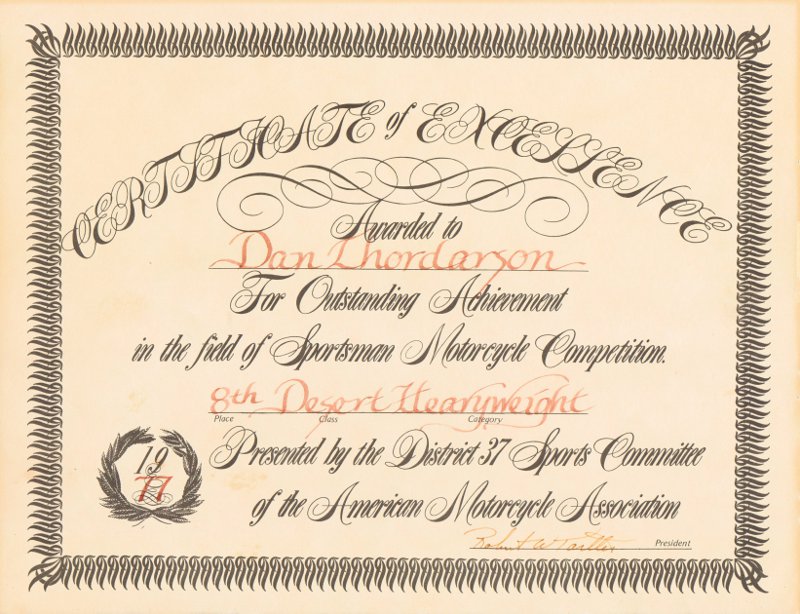 CERTIFICATE of EXCELLENCE
Awarded to
Dan Thordarson
For Outstanding Achievement
in the field of Sportsman Motorcycle Competition.
8th Desert Heavyweight
Place Class Category
1977
Presented by the District 37 Sports Committee
of the American Motorcycle Association
Robert W
President